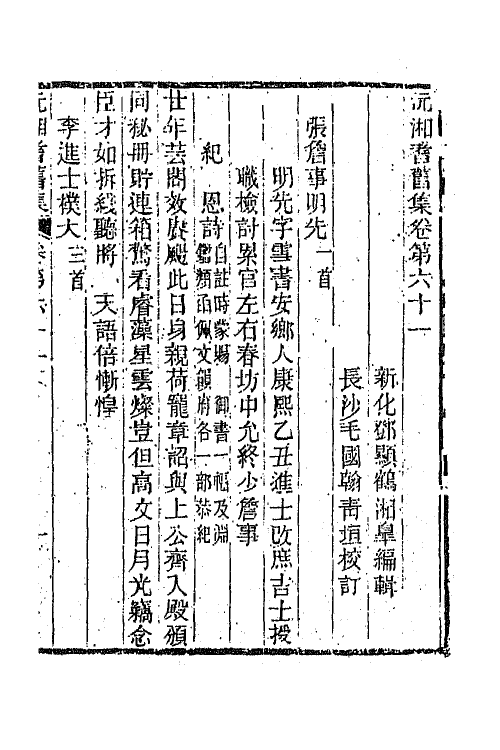 沅湘耆舊集卷第六十一
新化鄧顯鶴湘臯編輯
長沙毛國翰靑垣校訂
張詹事明先一首
明先字雲書安鄉人康熙乙丑進士改庶吉士授
職檢討累官左右春坊中允終少詹事
紀　恩詩自註時蒙賜　御書一幅及淵
鑑類函佩文韻府各一部恭紀
廿年芸閣效賡颺此日身親荷寵章詔與上公齊入殿頒
同秘冊貯連箱驚看睿藻星雲燦豈但高文日月光竊念
臣才如拆綫聽將　天語倍慚惶
李進士樸大三首
沅湘耆舊集　卷第六十一　一